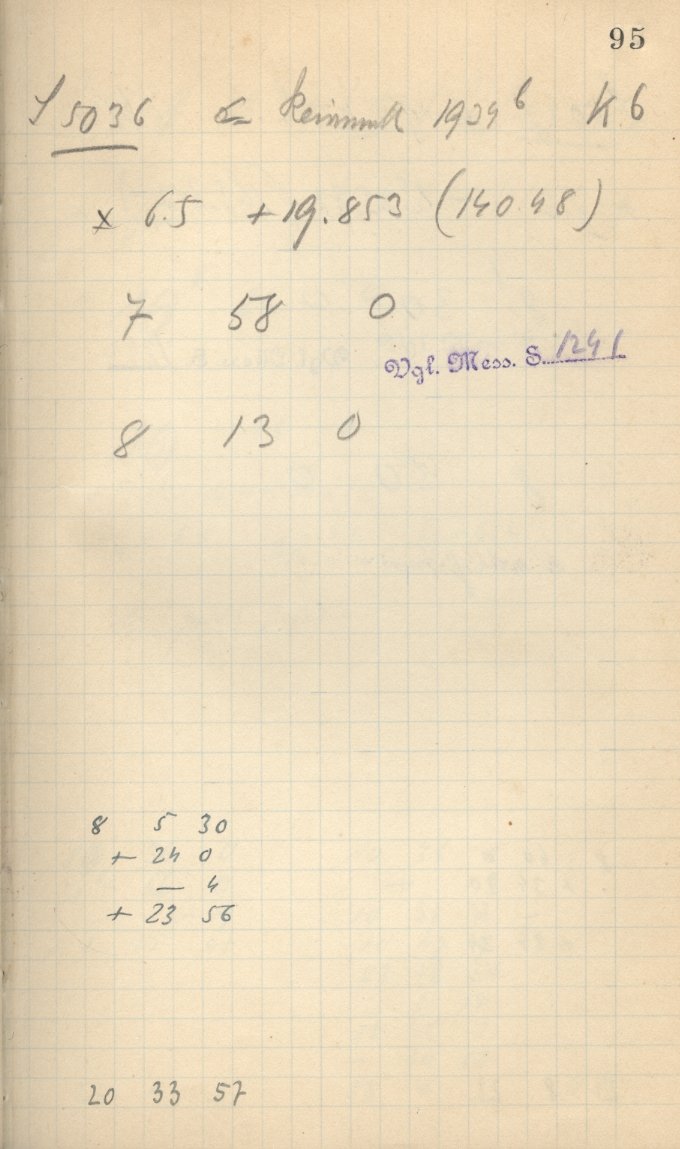 95
S 5036 Reinmuth 1929 b K 6
x 6.5 + 19.853 (140.48)
7 58 0
Vgl. Mess. S. 1241
8 13 0
8 5 30
+ 24 0
— 4
+ 23 56
20 33 57